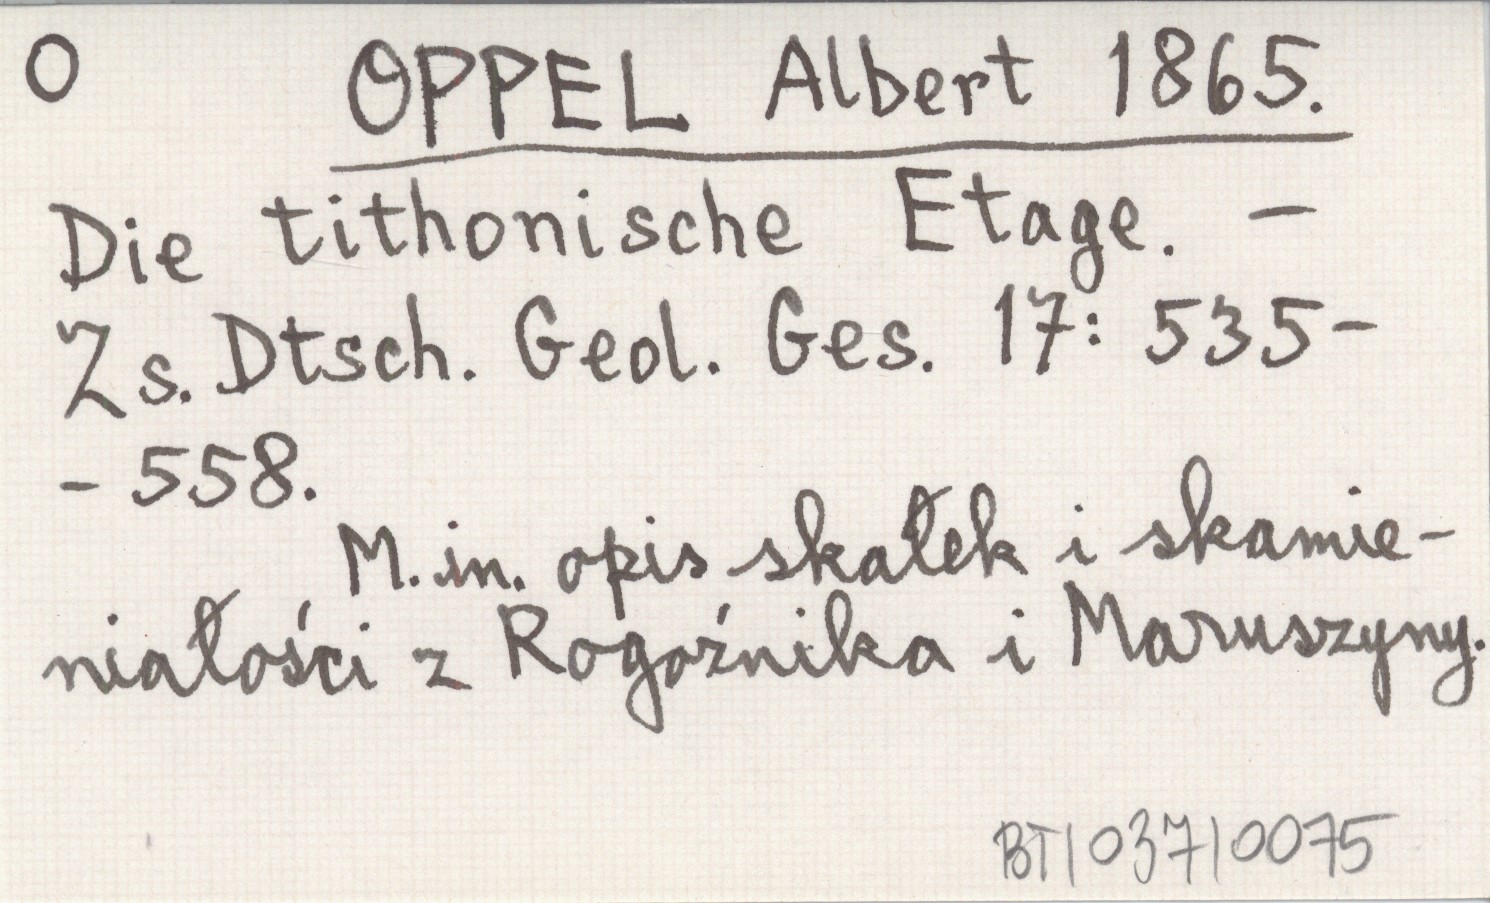 O OPPEL Albert 1865.
Die tithonische Etage. –
Zs. Dtsch. Geol. Ges. 17: 535-
- 558.
M. in. opis skałek i skamie-
niałości z Rogoźnika i Maruszyny.
BT/037/0075